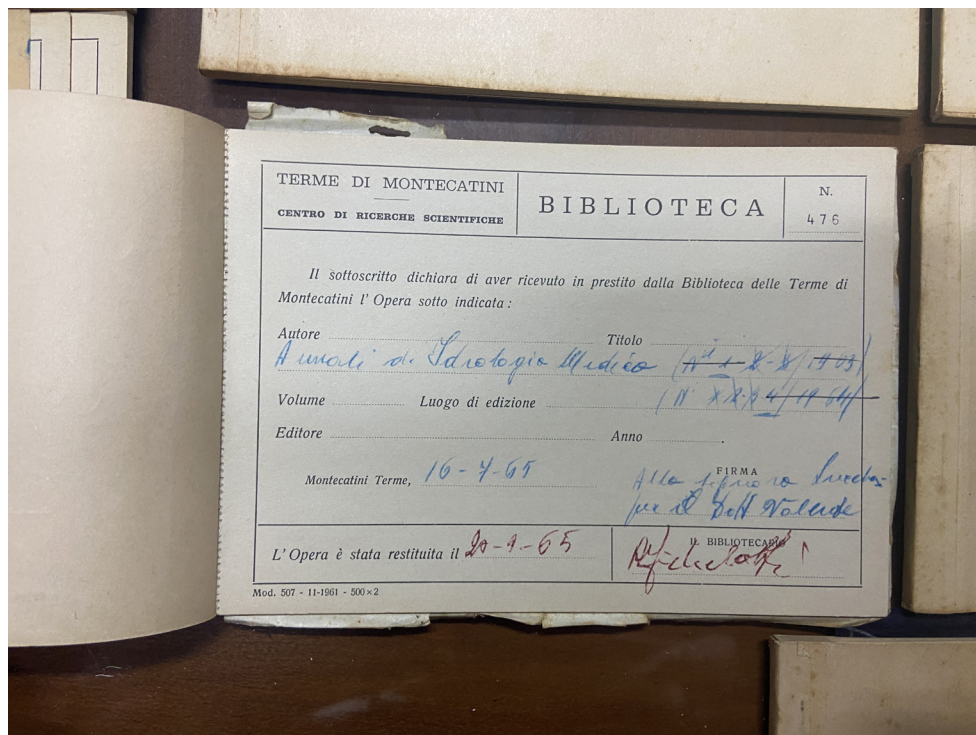 TERME DI MONTECATINI
CENTRO DI RICERCHE SCIENTIFICHE
BIBLIOTECA
N.
476
Il sottoscritto dichiara di aver ricevuto in prestito dalla Biblioteca delle Terme di
Montecatini l'Opera sotto indicata:
Autore Titolo
Annali di Idrologia Medica
Volume Luogo di edizione
Editore Anno
Montecatini Terme, 16-7-65
FIRMA
Alla signora
per il Dott
L'Opera è stata restituita il 20-9-65
IL BIBLIOTECARIO
Mod. 507 - 11-1961 - 500×2